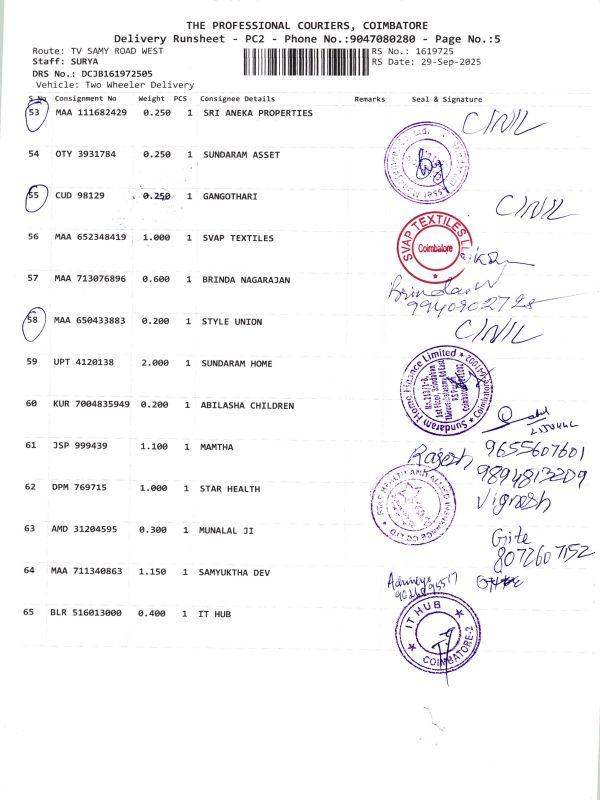 THE PROFESSIONAL COURIERS, COIMBATORE
Delivery Runsheet - PC2 - Phone No.:9047080280 - Page No.:5
Route: TV SAMY ROAD WEST
RS No.: 1619725
Staff: SURYA
RS Date: 29-Sep-2025
DRS No.: DCJB161972505
Vehicle: Two Wheeler Delivery
S No Consignment No Weight PCS Consignee Details Remarks Seal & Signature
53 MAA 111682429 0.250 1 SRI ANEKA PROPERTIES
C/N/L
54 OTY 3931784 0.250 1 SUNDARAM ASSET
55 CUD 98129 0.250 1 GANGOTHARI
C/N/L
56 MAA 652348419 1.000 1 SVAP TEXTILES
SVAP TEXTILES LLP
Coimbatore
57 MAA 713076896 0.600 1 BRINDA NAGARAJAN
Brinda
58 MAA 650433883 0.200 1 STYLE UNION
C/N/L
59 UPT 4120138 2.000 1 SUNDARAM HOME
Sundaram Home Finance Limited
60 KUR 7004835949 0.200 1 ABILASHA CHILDREN
61 JSP 999439 1.100 1 MAMTHA
Rajesh 9655607601
9894813209
62 DPM 769715 1.000 1 STAR HEALTH
STAR HEALTH AND ALLIED INSURANCE CO LTD
Vignesh
63 AMD 31204595 0.300 1 MUNALAL JI
8072607152
64 MAA 711340863 1.150 1 SAMYUKTHA DEV
65 BLR 516013000 0.400 1 IT HUB
IT HUB
COIMBATORE-2